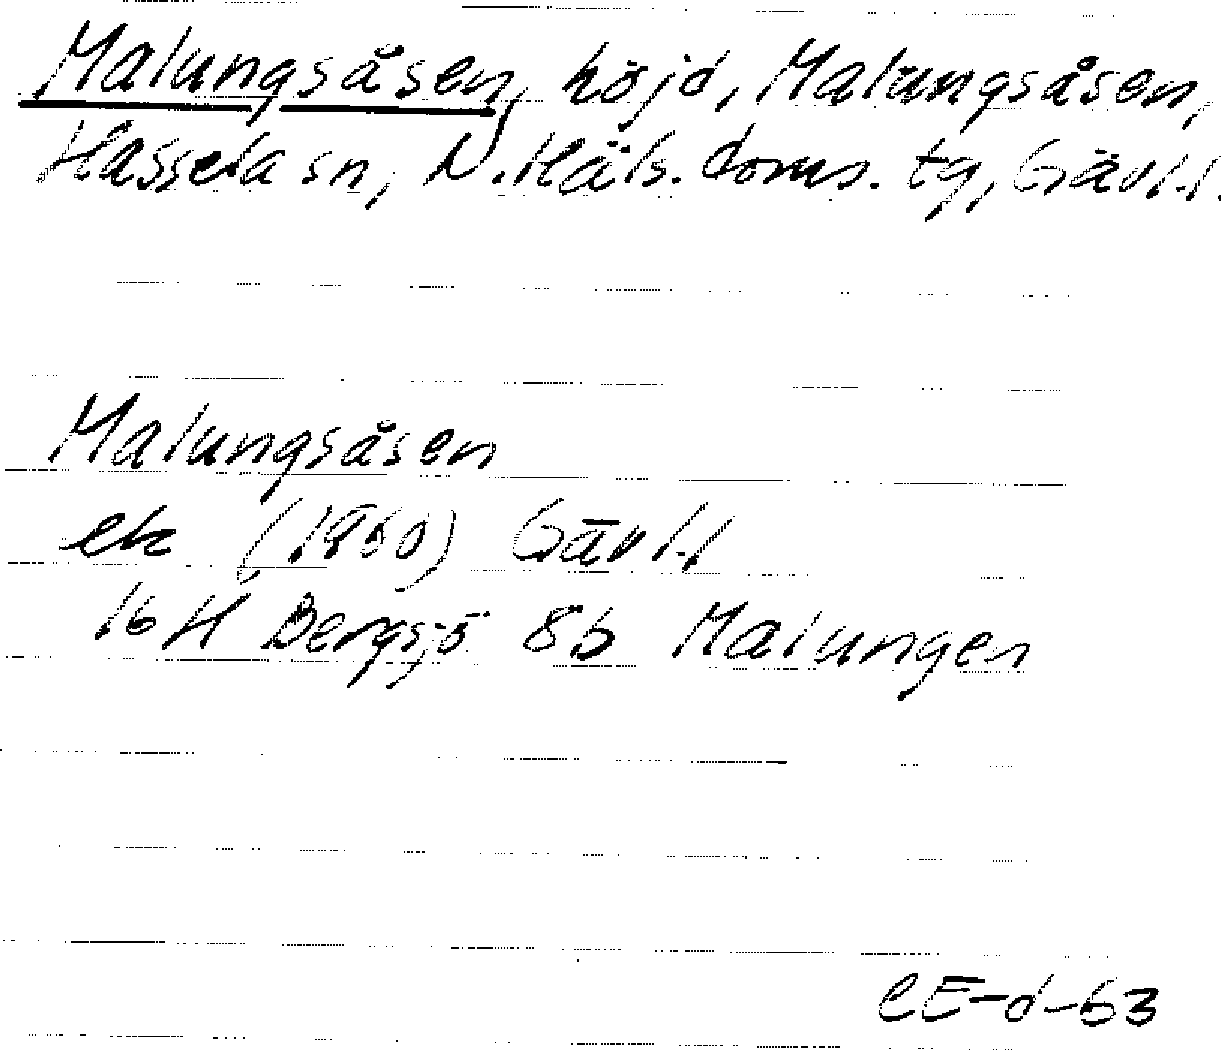 Malungsåsen, höjd, Malungsåsen,
Hassela sn, N. Häls. doms. tg, Gävl.l.
Malungsåsen
ek (1960) Gävl.l
16H Bergsjö 8b Malungen
CE-d-63